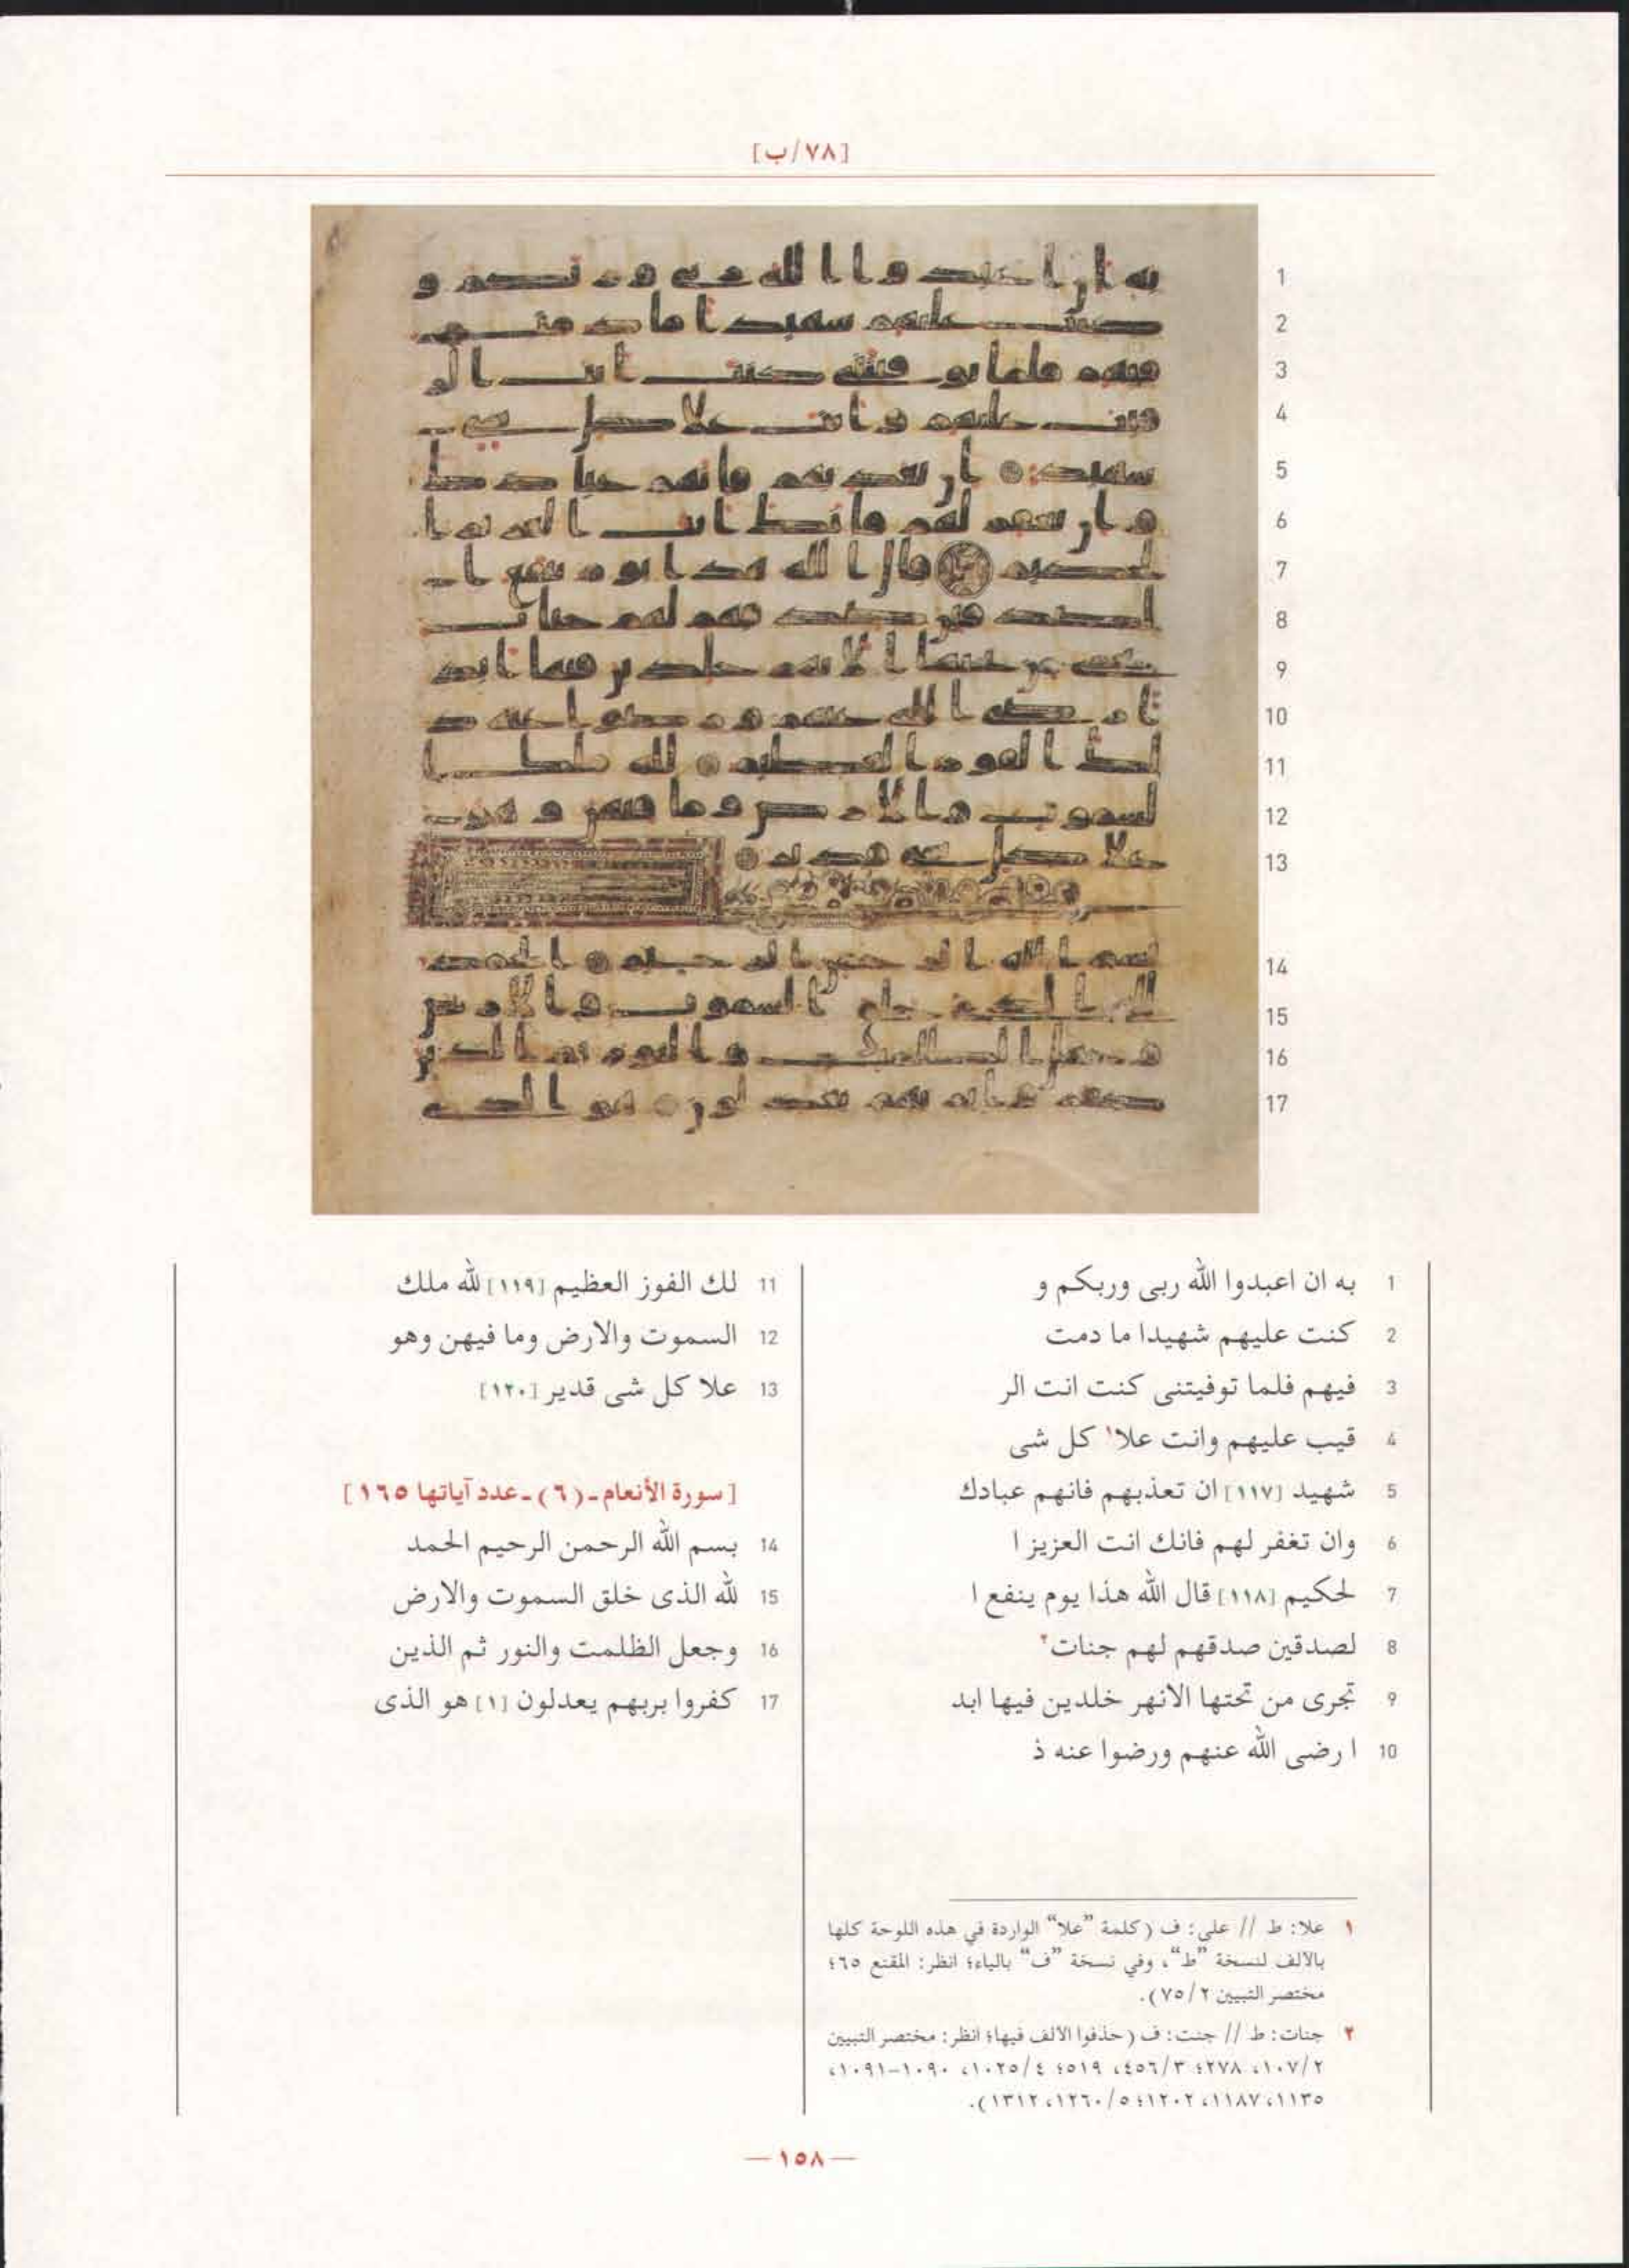 [٧٨/ب]
1 به ان اعبدوا الله ربى وربكم و
2 كنت عليهم شهيدا ما دمت
3 فيهم فلما توفيتنى كنت انت الر
4 قيب عليهم وانت علا¹ كل شى
5 شهيد [١١٧] ان تعذبهم فانهم عبادك
6 وان تغفر لهم فانك انت العزيز ا
7 لحكيم [١١٨] قال الله هذا يوم ينفع ا
8 لصدقين صدقهم لهم جنات²
9 تجرى من تحتها الانهر خلدين فيها ابد
10 ا رضى الله عنهم ورضوا عنه ذ
11 لك الفوز العظيم [١١٩] لله ملك
12 السموت والارض وما فيهن وهو
13 علا كل شى قدير [١٢٠]
[سورة الأنعام-(٦)-عدد آياتها ١٦٥]
14 بسم الله الرحمن الرحيم الحمد
15 لله الذى خلق السموت والارض
16 وجعل الظلمت والنور ثم الذين
17 كفروا بربهم يعدلون [١] هو الذى
١ علا: ط // على: ف (كلمة "علا" الواردة في هذه اللوحة كلها
بالألف لنسخة "ط"، وفي نسخة "ف" بالياء؛ انظر: المقنع ٦٥؛
مختصر التبيين ٧٥/٢).
٢ جنات: ط // جنت: ف (حذفوا الألف فيها؛ انظر: مختصر التبيين
١٠٧/٢، ٢٧٨؛ ٤٥٦/٣، ٥١٩؛ ١٠٢٥/٤، ١٠٩٠-١٠٩١،
١١٣٥، ١١٨٧، ١٢٠٢؛ ١٢٦٠/٥، ١٣١٢).
— ١٥٨ —